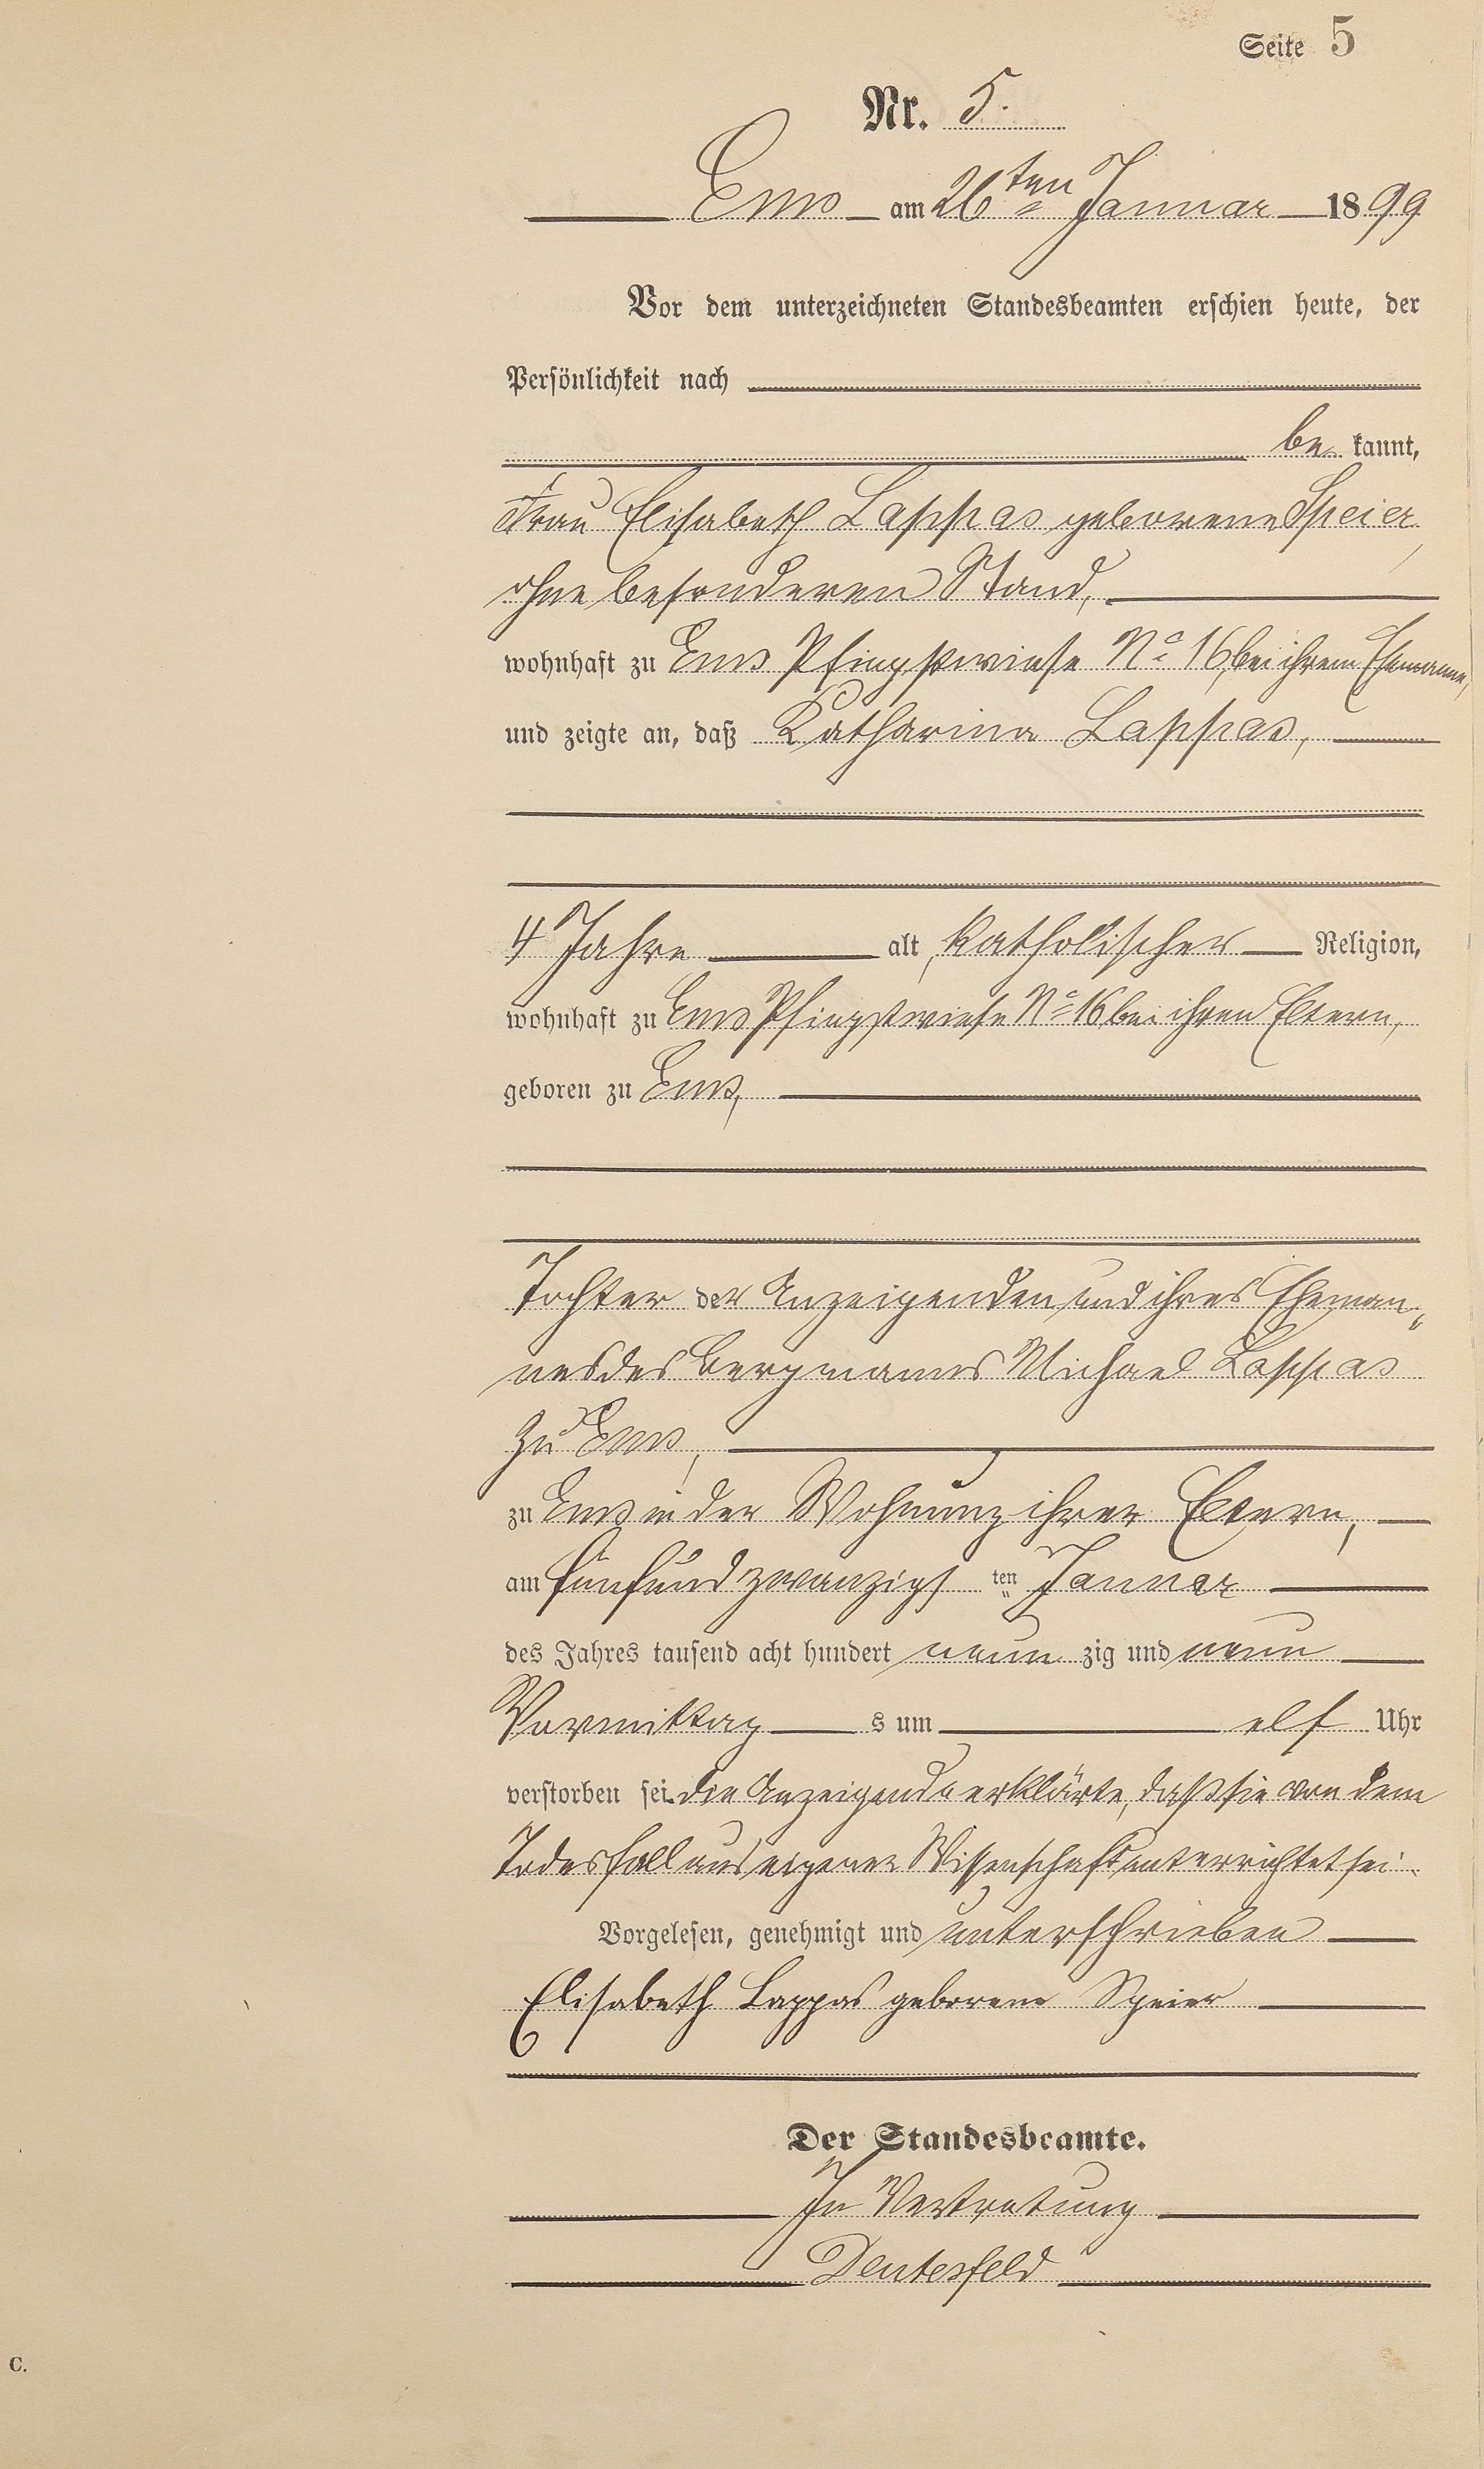 Seite 5
Nr. 5.
Ems am 26ten Januar 1899
Vor dem unterzeichneten Standesbeamten erschien heute, der
Persönlichkeit nach
be kannt,
Frau Elisabeth Lappas geborene Speier,
ohne besonderen Stand,
wohnhaft zu Ems Pfingstwiese No 16, bei ihrem Ehemanne,
und zeigte an, daß Katharina Lappas,
4 Jahre alt, katholischer Religion,
wohnhaft zu Ems Pfingstwiese No 16 bei ihren Eltern,
geboren zu Ems,
Tochter der Anzeigenden und ihres Eheman„
nes des Bergmannes Michael Lappas
zu Ems,
zu Ems in der Wohnung ihrer Eltern,
am fünfundzwanzigs ten Januar
des Jahres tausend acht hundert neun zig und neun
Vormittag s um elf Uhr
verstorben sei. Die Anzeigende erklärte, daß sie von dem
Todesfall aus eigener Wissenschaft unterrichtet sei.
Vorgelesen, genehmigt und unterschrieben
Elisabeth Lappas geborene Speier
Der Standesbeamte.
In Vertretung
Deutesfeld
C.